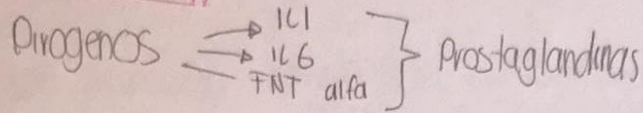 Pirogenos → IL1
→ IL6
FNT alfa } Prostaglandinas